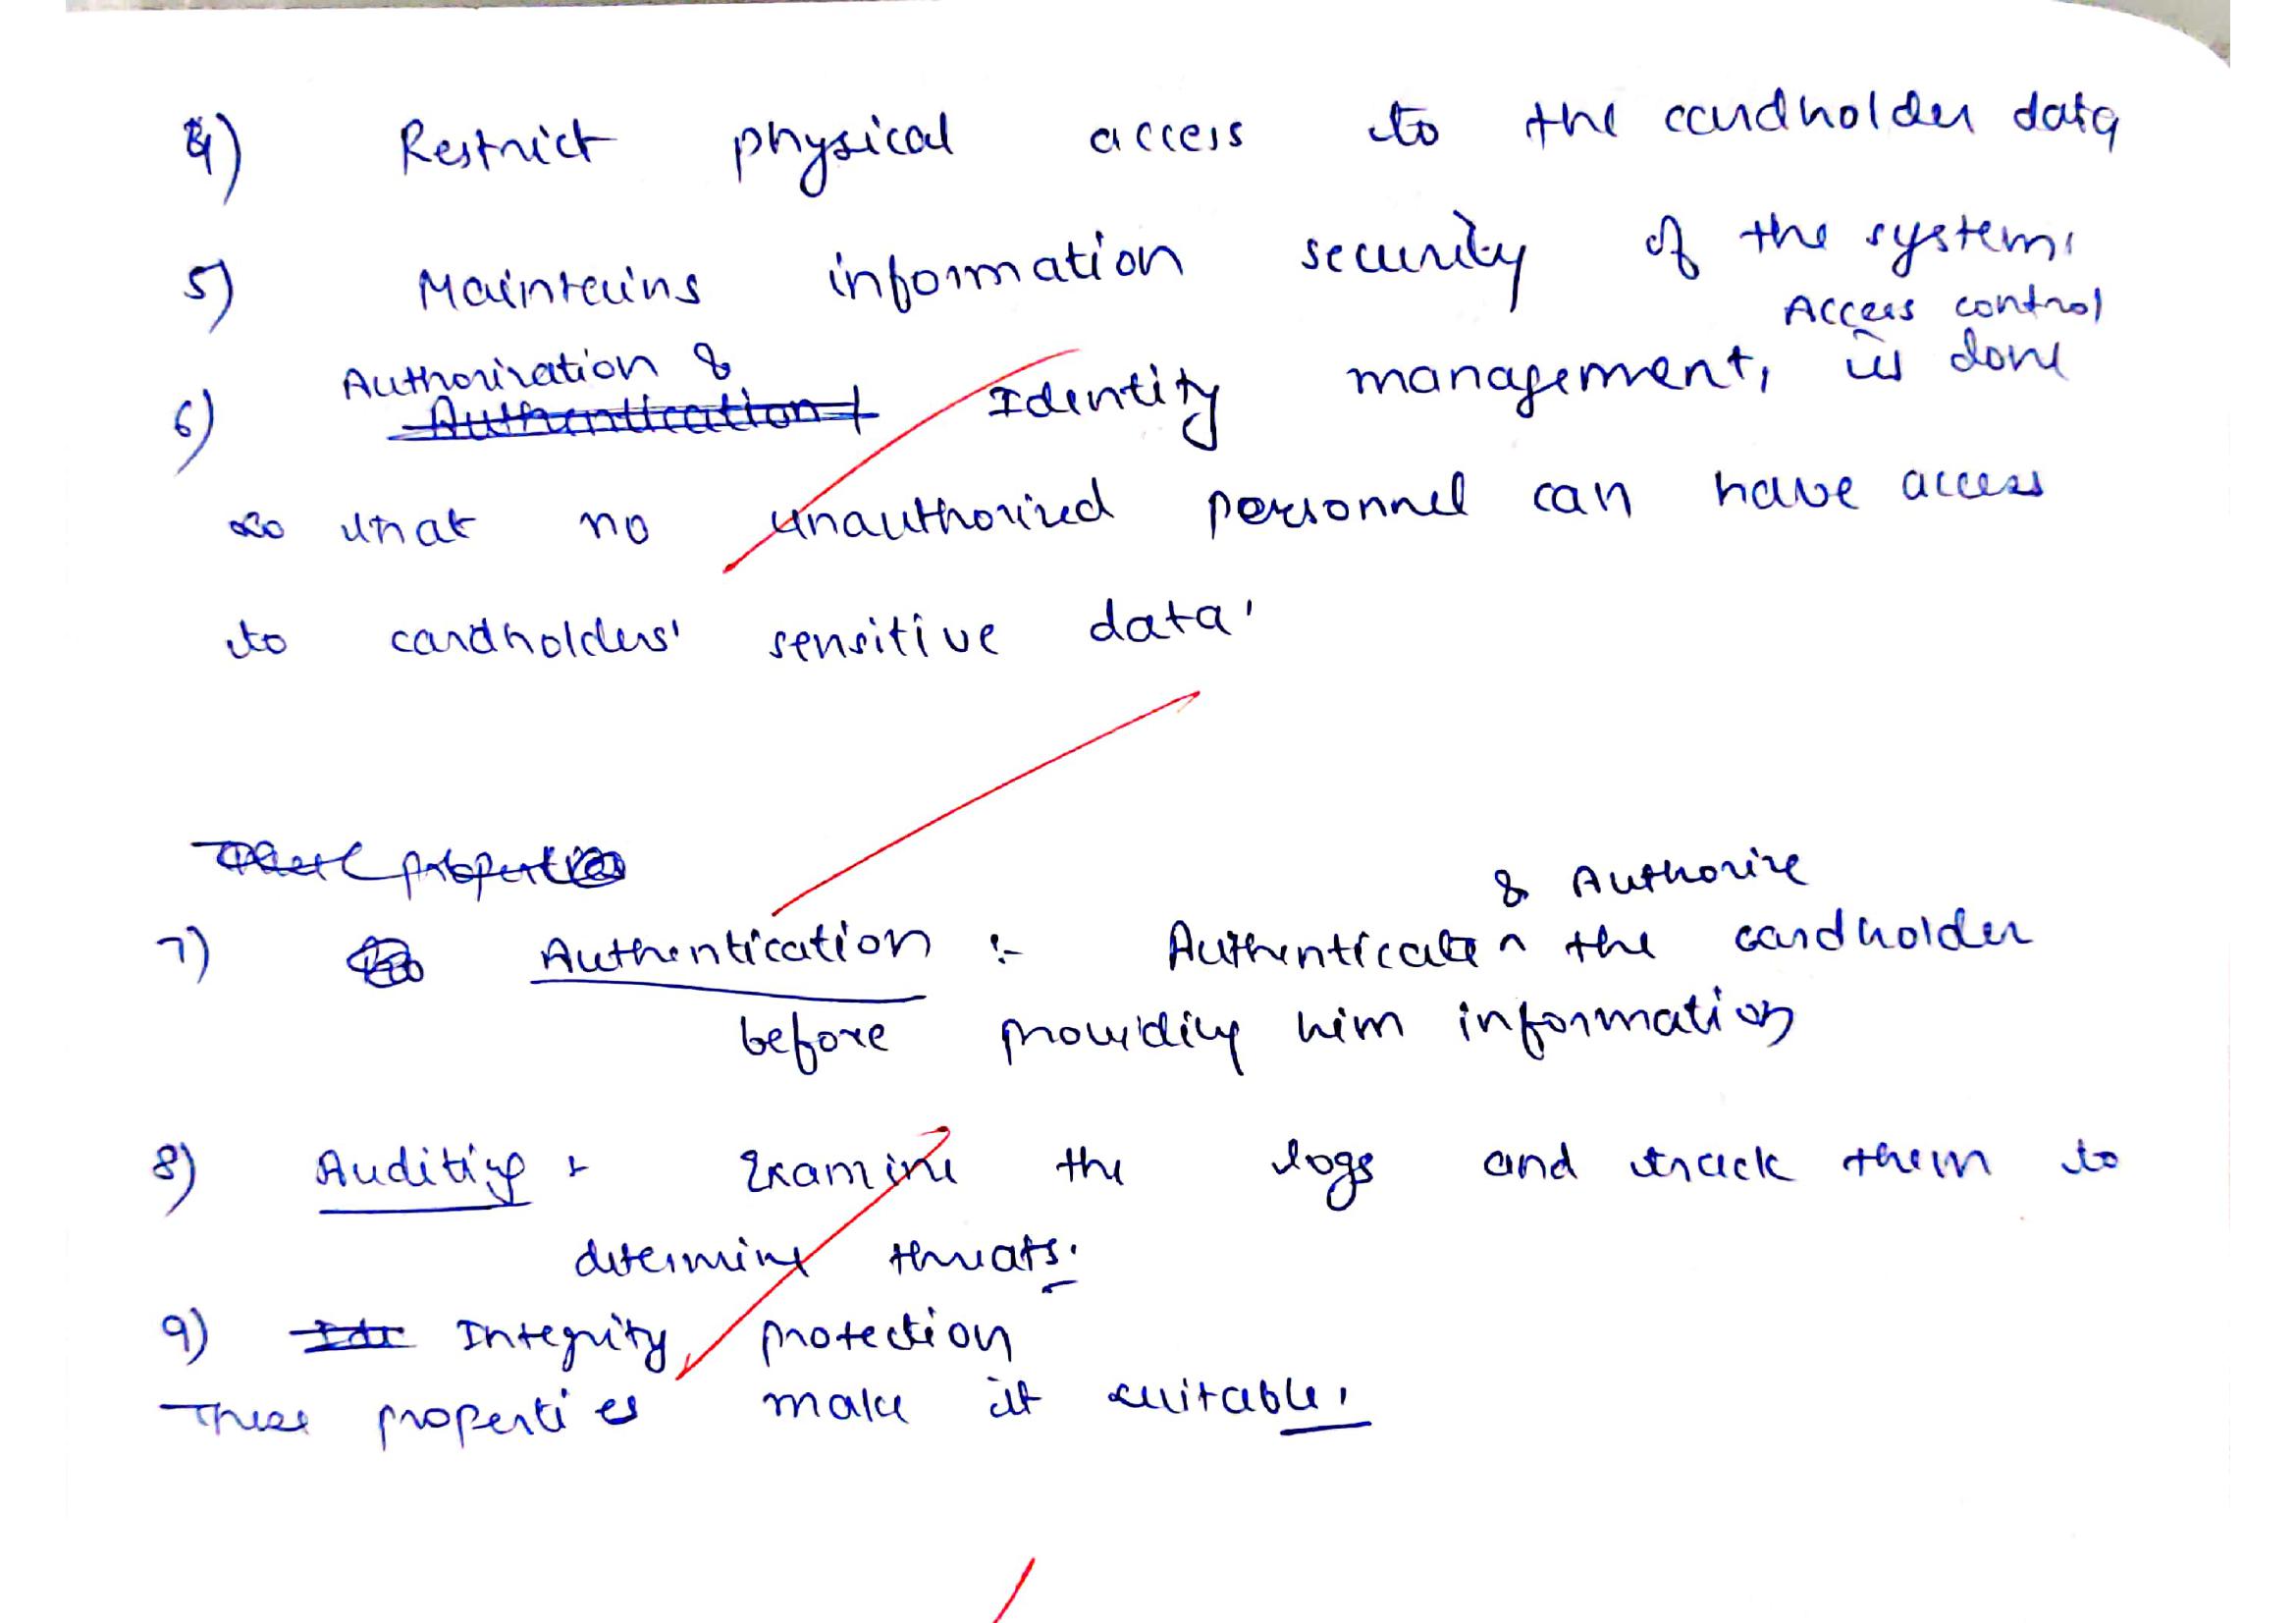 4) Restrict physical access to the cardholder data
5) Maintains information security of the system.
Access control
Authorization &
6) Authentication + Identity management, is done
so that no unauthorized personnel can have access
to cardholders' sensitive data.
These properties
& Authorize
7) Authentication :- Authenticate ^ the cardholder
before providing him information
8) Auditing :- Examine the logs and track them to
determine threats.
9) Ide Integrity protection
These properties make it suitable.